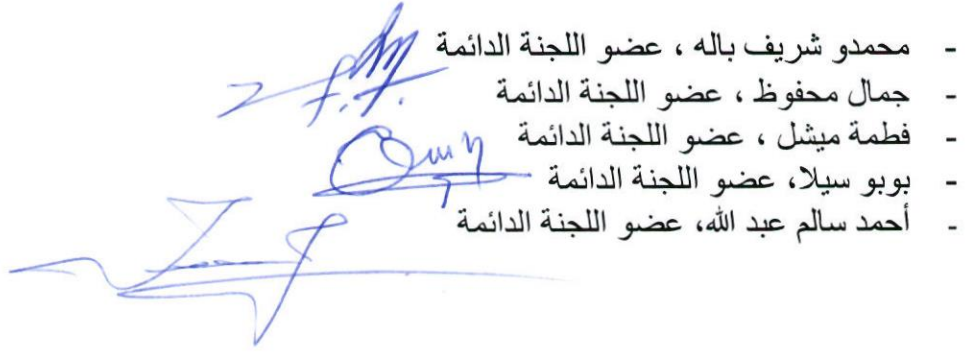 - محمدو شريف باله ، عضو اللجنة الدائمة
- جمال محفوظ ، عضو اللجنة الدائمة
- فطمة ميشل ، عضو اللجنة الدائمة
- بوبو سيلا، عضو اللجنة الدائمة
- أحمد سالم عبد الله، عضو اللجنة الدائمة